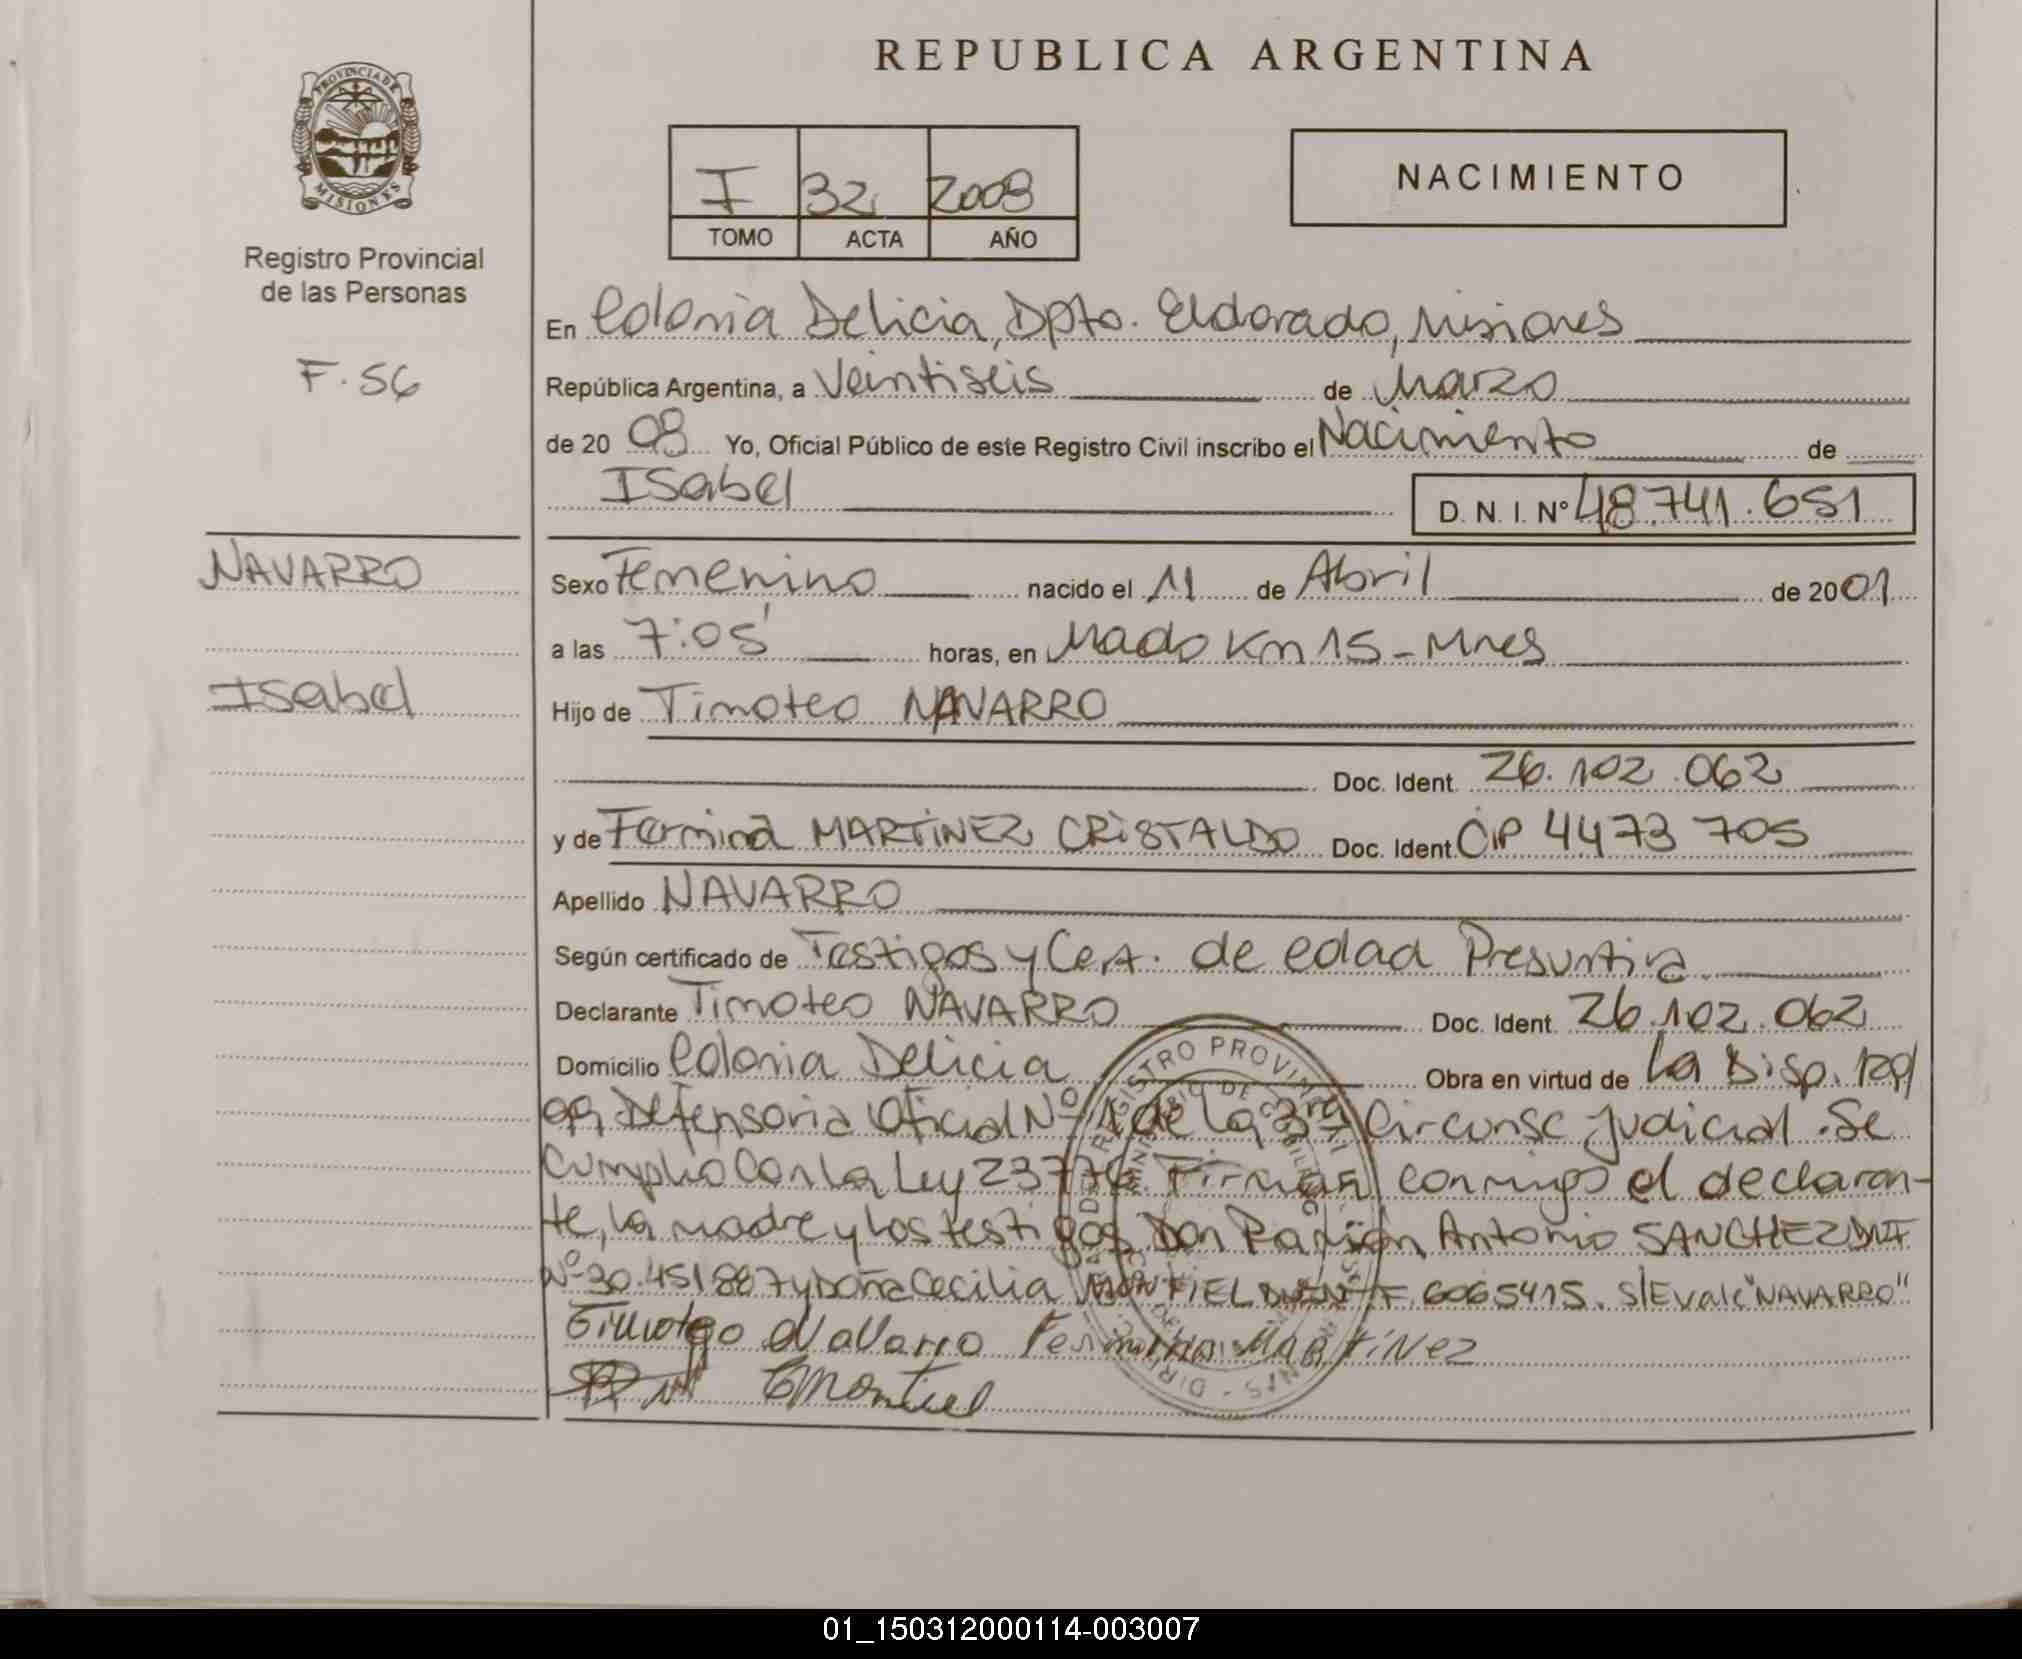 REPUBLICA ARGENTINA
PROVINCIA DE
MISIONES
Registro Provincial
de las Personas
F. 56
I 32 2008
TOMO ACTA AÑO
NACIMIENTO
En Colonia Delicia, Dpto. Eldorado, Misiones
República Argentina, a Veintiseis de Marzo
de 20 08 Yo, Oficial Público de este Registro Civil inscribo el Nacimiento de
Isabel D. N. I. Nº 48.741.651
NAVARRO
Isabel
Sexo Femenino nacido el 11 de Abril de 2001
a las 7:05' horas, en Mado Km 15 - Mnes
Hijo de Timoteo NAVARRO
Doc. Ident. 26.102.062
y de Fermina MARTINEZ CRISTALDO Doc. Ident. CIP 4473705
Apellido NAVARRO
Según certificado de Testigos y Cert. de edad Presuntiva
Declarante Timoteo NAVARRO Doc. Ident. 26.102.062
Domicilio Colonia Delicia Obra en virtud de La Disp.
Defensoria Oficial Nº 1 de La 3ra Circunsc Judicial. Se
Cumplio Con la Ley 23776. Firman conmigo el declaran-
te, la madre y los testigos Don Ramón Antonio SANCHEZ DNI
Nº 30.451887 y Doña Cecilia MONTIEL F. 6065415. S/E Vale "NAVARRO"
Timoteo Navarro Fermina MARTINEZ
CMontiel
REGISTRO PROVINCIAL
01_150312000114-003007